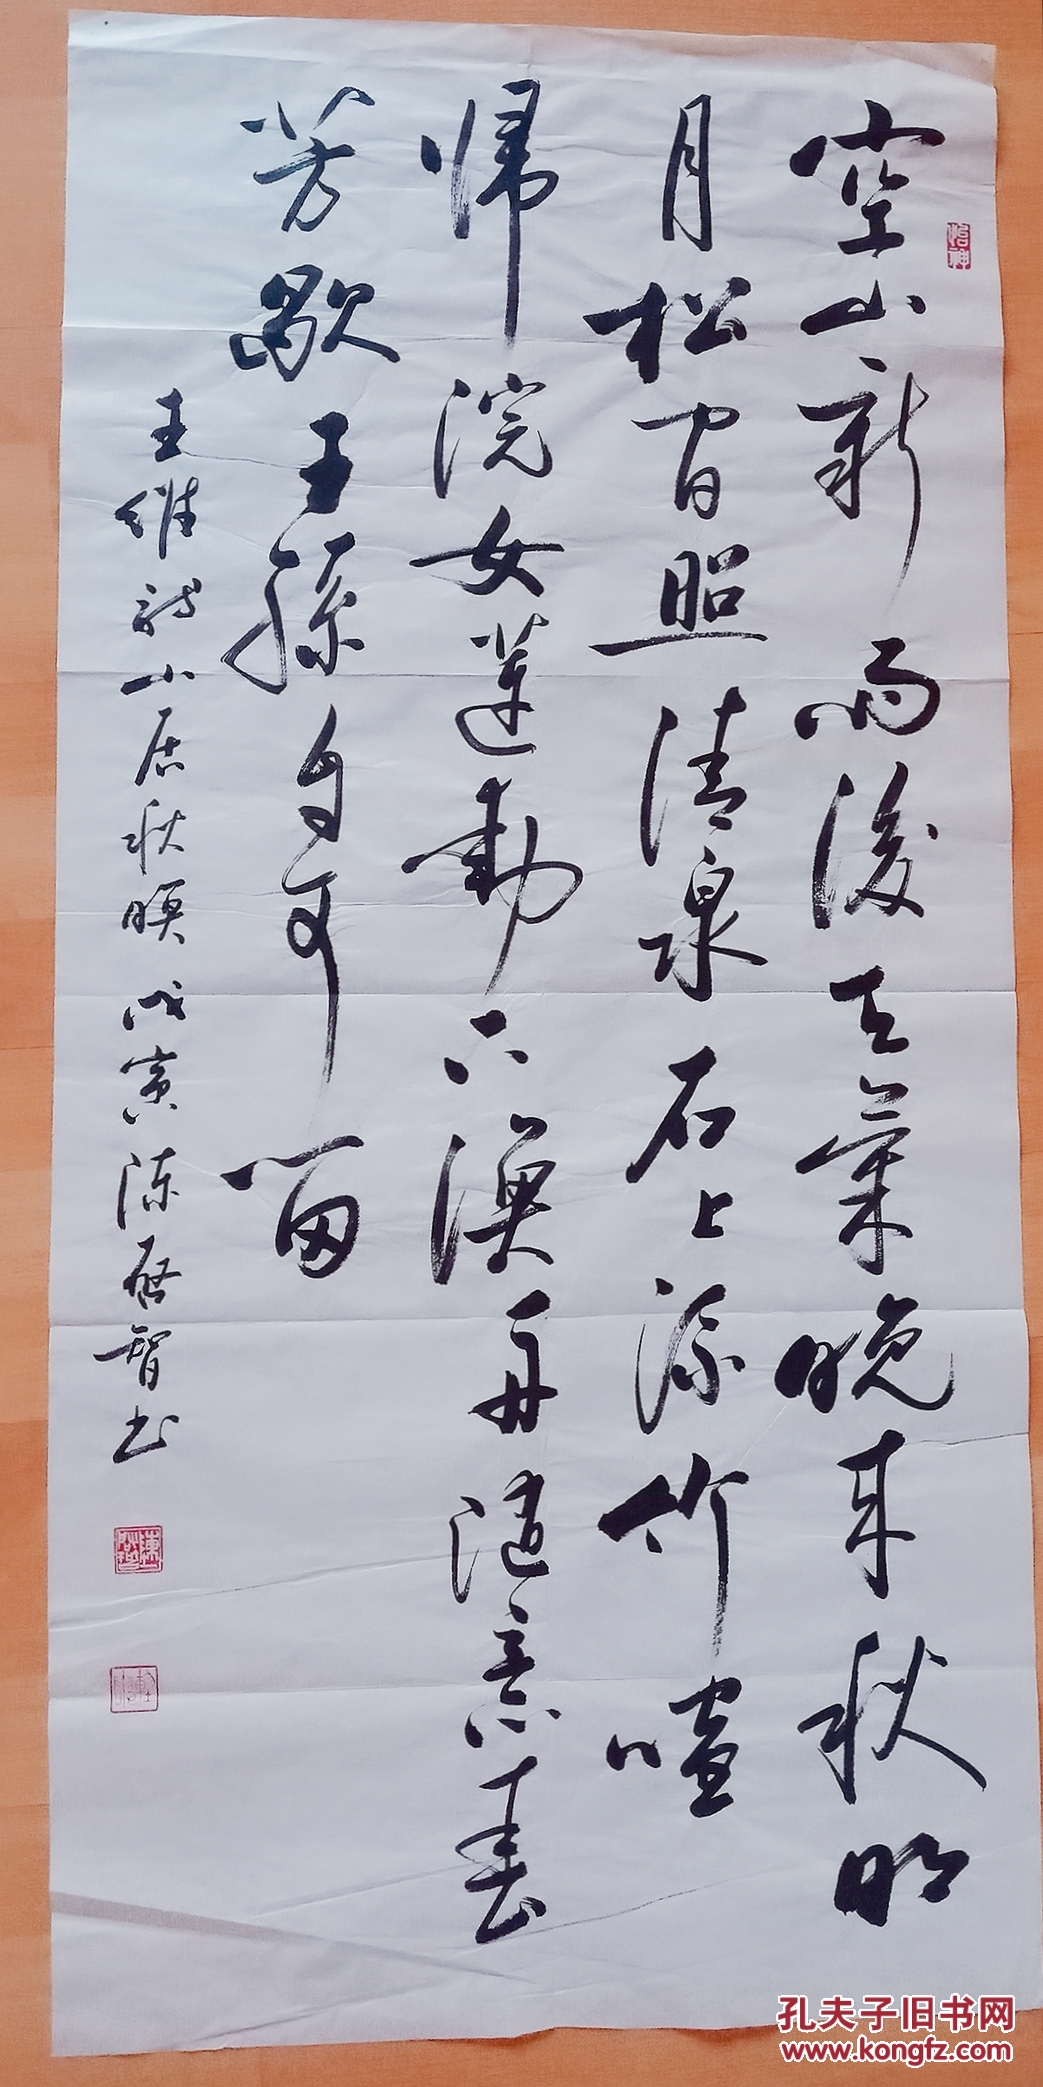 怡神
空山新雨後天氣晚来秋明
月松間照清泉石上流竹喧
歸浣女蓮動下漁舟随意春
芳歇王孫自可留
王維詩山居秋暝 戊寅 陳啟智书
孔夫子旧书网
www.kongfz.com